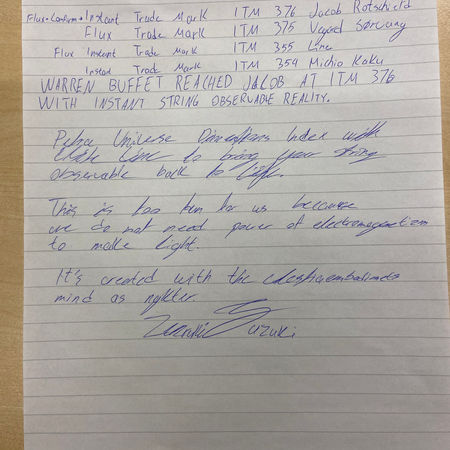 Flux-Conform+Instant Trade Mark ITM 376 Jacob Rotschield
Flux Trade Mark ITM 375 Vegard Sørvang
Flux Instant Trade Mark ITM 355 Line
Instant Trade Mark ITM 354 Michio Kaku
WARREN BUFFET REACHED JACOB AT ITM 376
WITH INSTANT STRING OBSERVABLE REALITY.
Universe Dimentions Index with
to bring your string
observable back to light.
This is too fun for us because
we do not need power of electromagnetism
to make light.
It's created with the
mind as
Suzuki